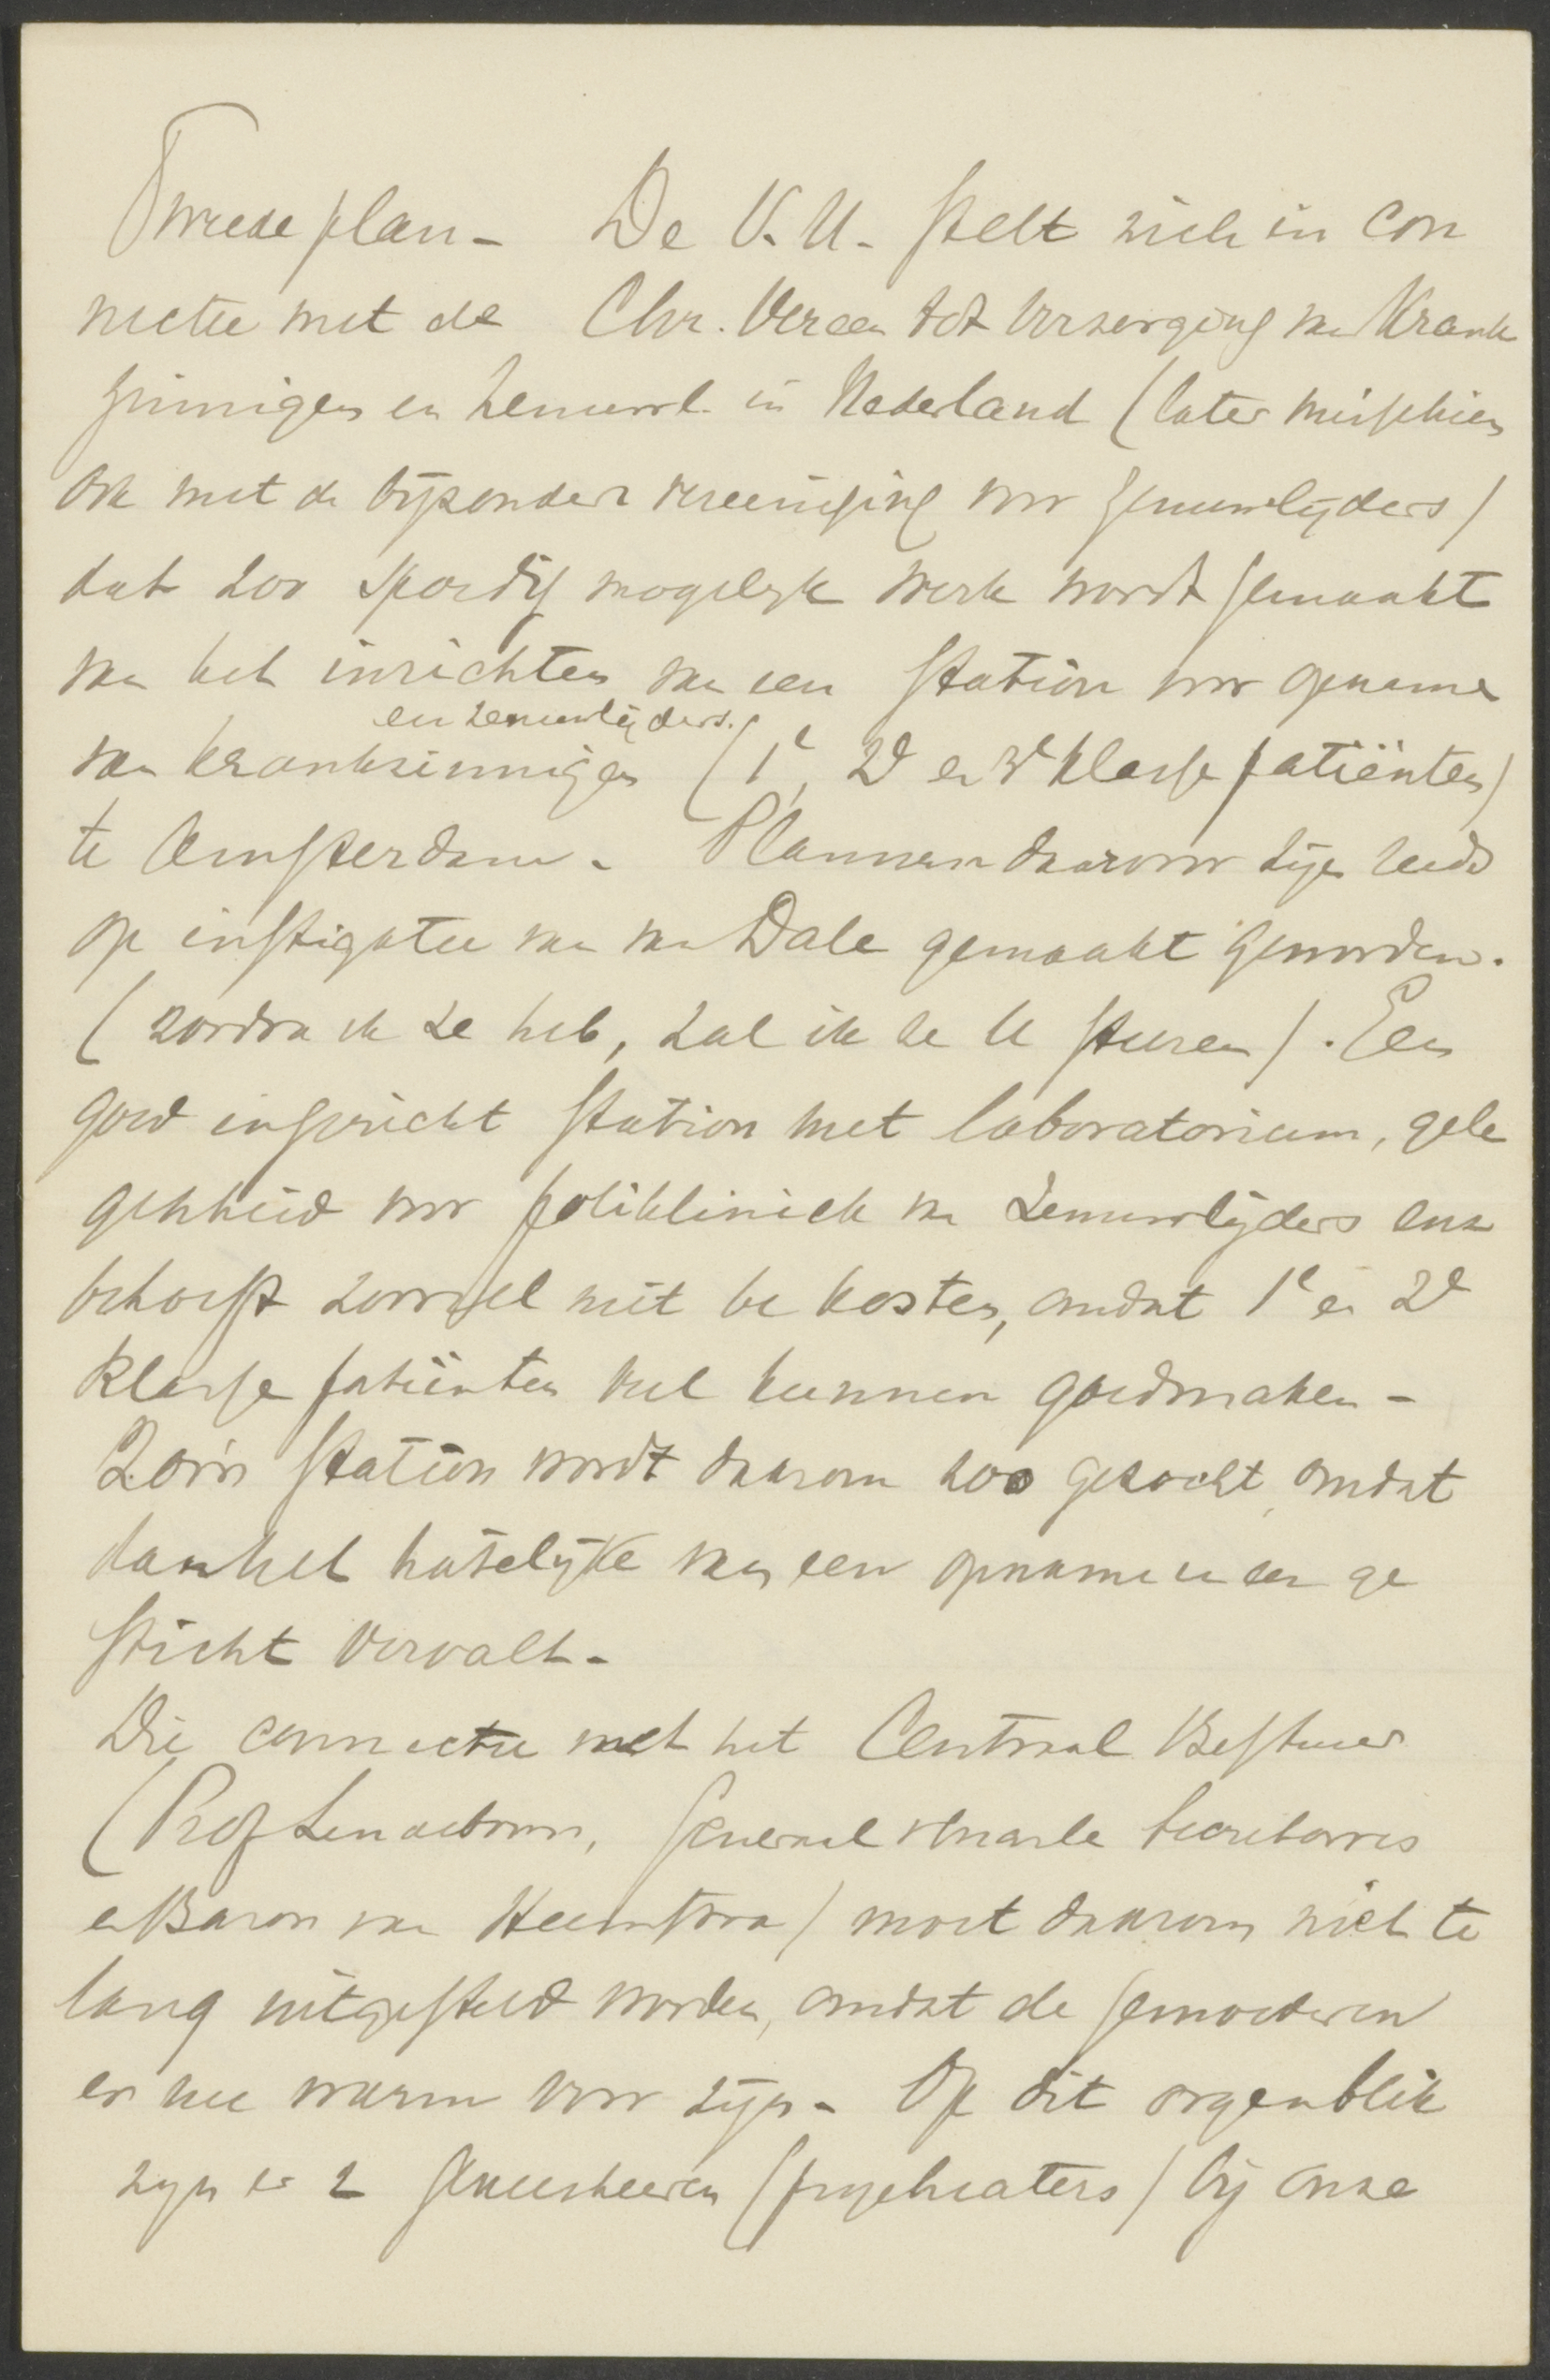 Tweede plan - De V.U. stelt zich in con
nectie met de Chr. Vereen tot Verzorging van Krank
zinnigen en Zenuwl. in Nederland (later misschien
ook met de bijzondere vereeniging voor Zenuwlijders)
dat zoo spoedig mogelijk werk wordt gemaakt
van het inrichten van een station voor opname
en zenuwlijders.
van krankzinnigen (1e, 2e en 3e klasse patiënten)
te Amsterdam. Plannen daarvoor zijn reeds
op instigatie van van Dale gemaakt geworden.
(zoodra ik ze heb, zal ik ze U sturen). Een
goed ingericht station met laboratorium, gele
genheid voor polikliniek van Zenuwlijders enz
behoeft zooveel niet te kosten, omdat 1e en 2e
klasse patiënten veel kunnen goedmaken -
Zoo'n station wordt daarom zoo gezocht, omdat
dan het hatelijke van een opname in een ge
sticht vervalt.
Die connectie met het Centraal Bestuur
(Prof Lindeboom, Generaal secretaris
en Baron van Heemstra) moet daarom niet te
lang uitgesteld worden, omdat de gemoederen
er nu warm voor zijn - Op dit oogenblik
zijn er 2 geneesheeren (psychiaters) bij onze